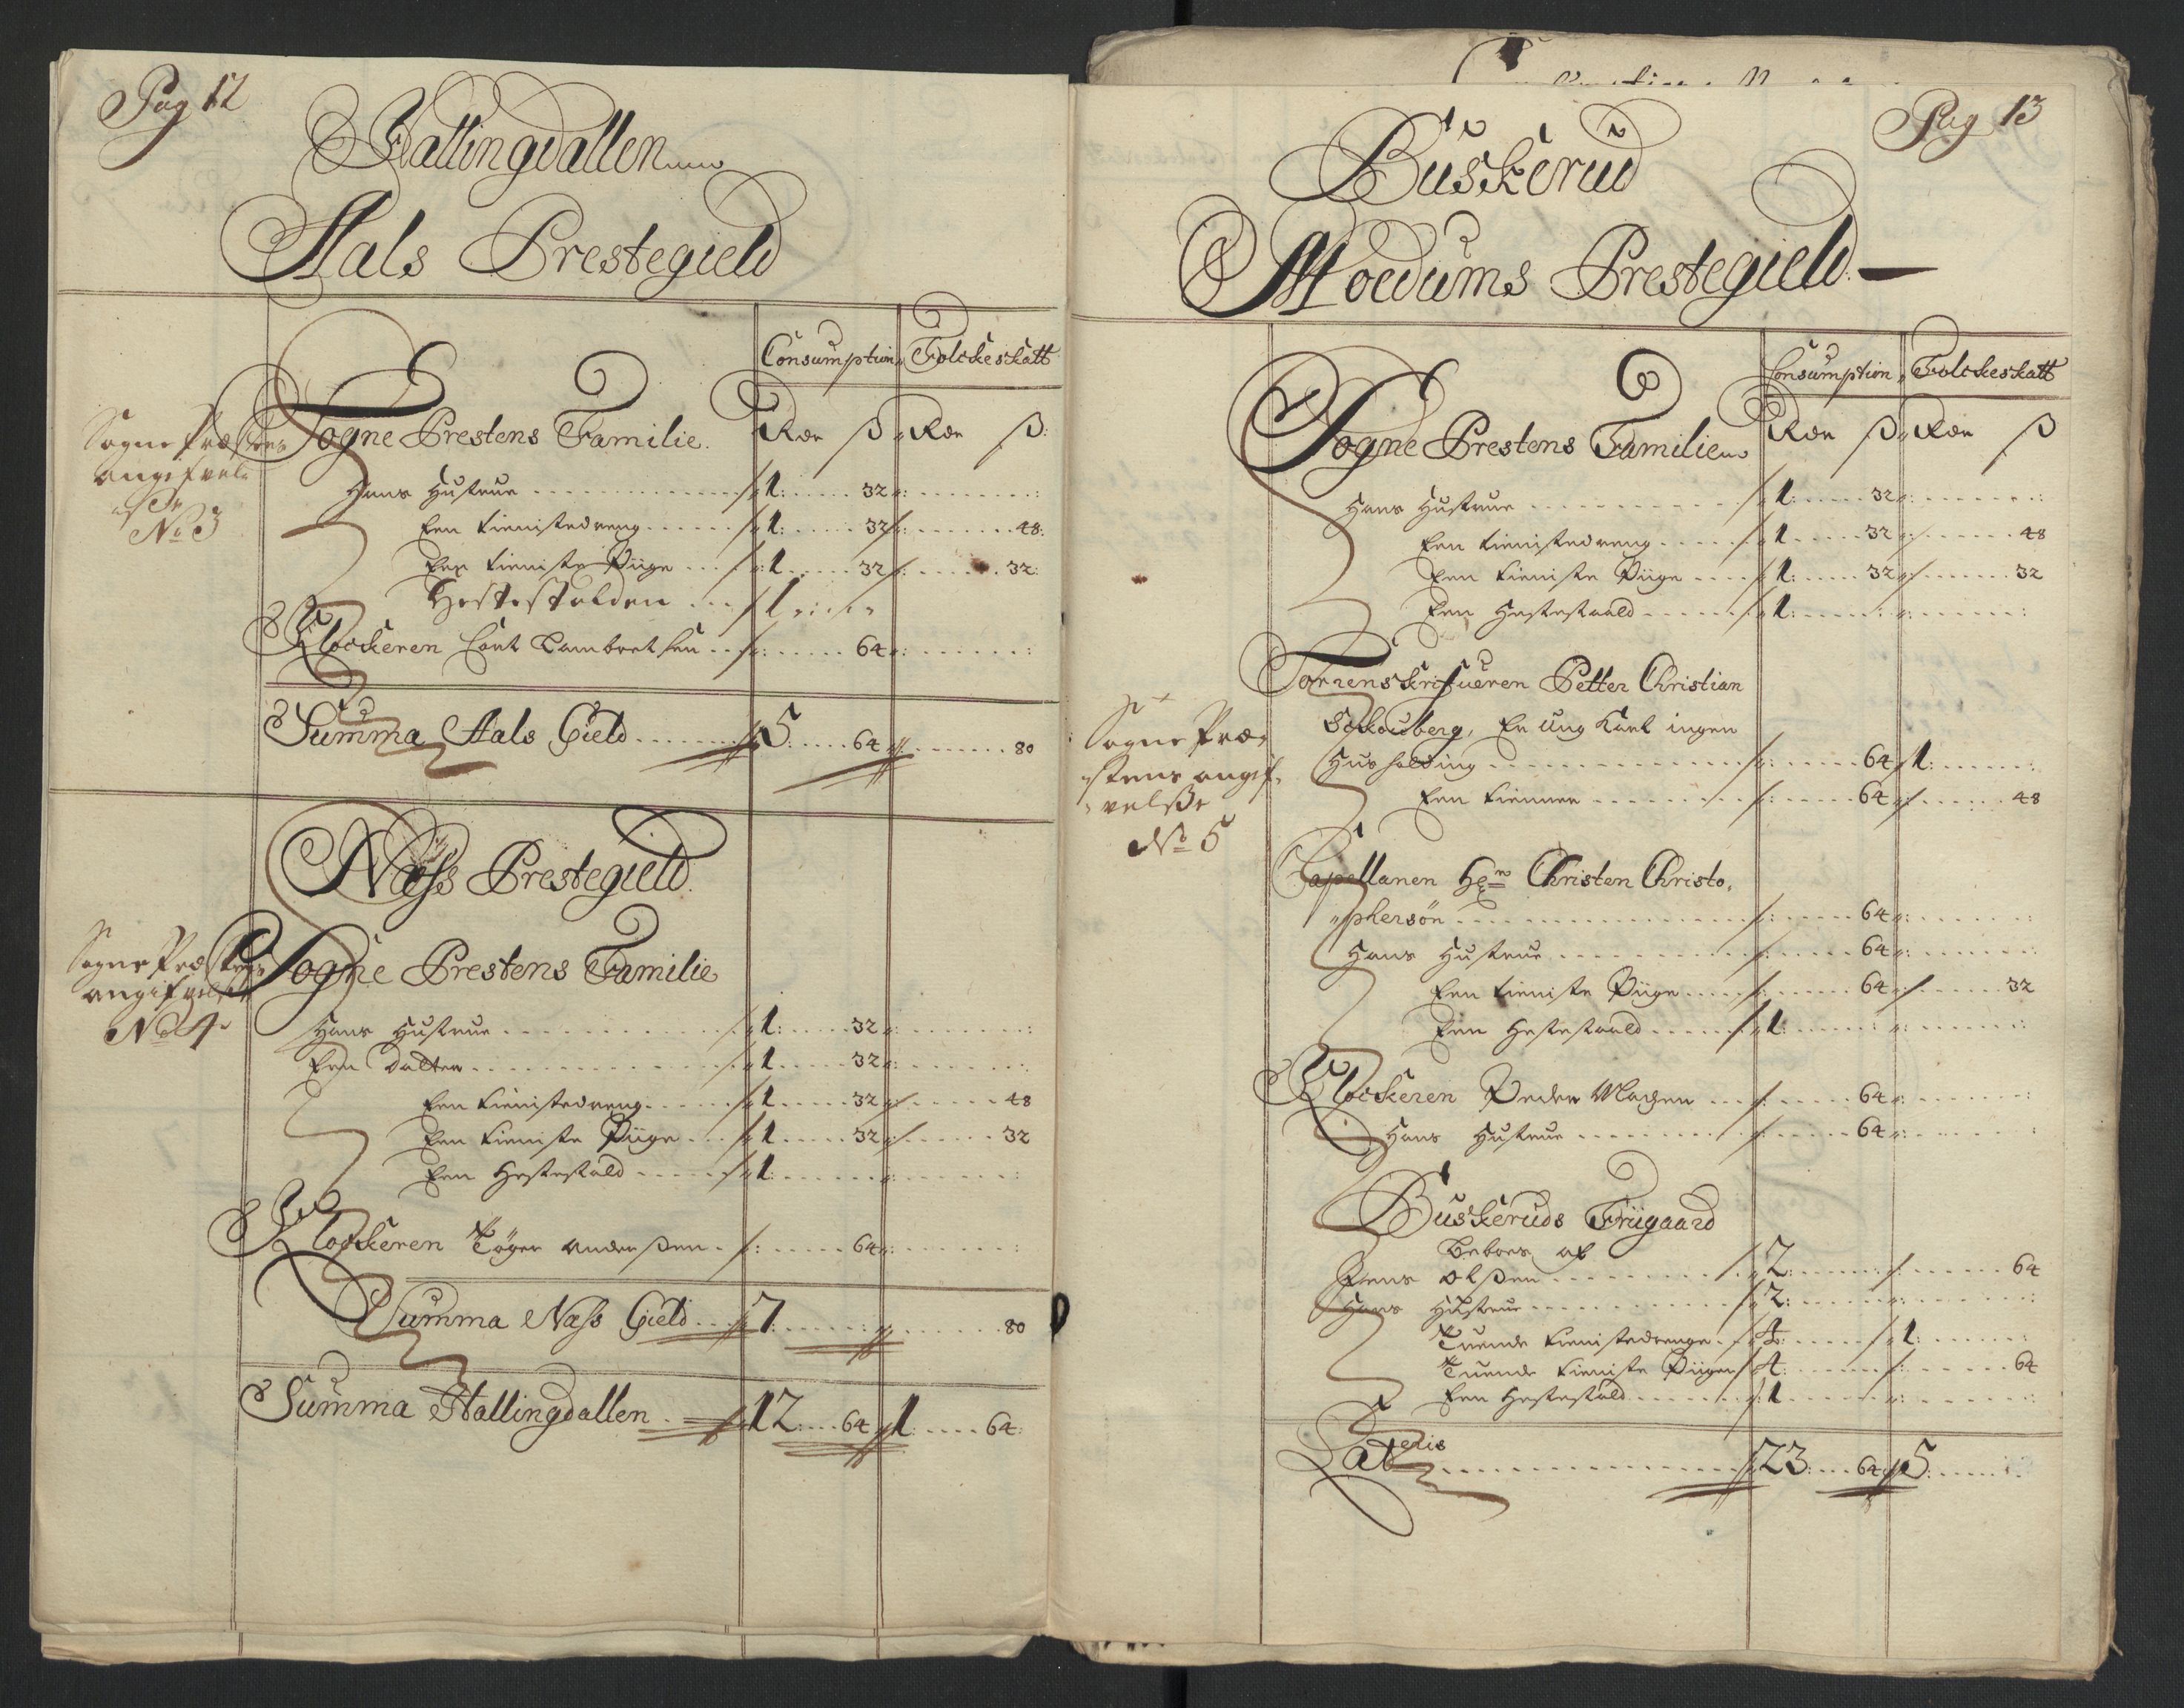 Pag 12
Hallingdallen
Aals Prestegield
Consumption Folckeskatt
Sogne Prestens Familie. Rdr ß Rdr ß
Sogne Præstens
angifvel-
se
No 3
Hans Hustrue 1: 32
Een tienistedreng 1: 32 48:
Een tieniste Piige 1: 32 32:
Hestestalden 1
Klockeren Lambretsen 64
Summa Aals Gield 5: 64 80
Næss Prestegield.
Sogne Prestens Familie
Sogne Præstens
angifvelse
No 4
Hans Hustrue 1: 32
Een Datter 1: 32
Een tienistedreng 1: 32 48
Een tieniste Piige 1: 32 32
Een Hestestald 1:
Klockeren Tøger Anderßen 64
Summa Næss Gield 7 80
Summa Hallingdallen 12: 64 1: 64:
Pag 13
Buskerud
Moedums Prestegield.
Consumption Folckeskatt
Sogne Prestens Familie Rdr ß Rdr ß
Hans Hustrue 1: 32
Een tienistedreng 1 32 48
Een tieniste Piige 1: 32 32
Een Hestestaald 1:
Sorrenskrifueren Petter Christian
Schouberg, En Ung Karl ingen
Huusholding 64 1:
Een tienner 64 48
Sogne Præ-
stens angif-
velße
No 5
Capellanen Hr Christen Christo,
phersøn 64
Hans Hustrue 64
Een tieniste Piige 64 32
Een Hestestaald 1:
Klockeren Peder Madzen 64
Hans Hustrue 64
Buskeruds Friigaard
Beboes af
Jens Olßen 2: 64
Hans Hustrue 2:
Tvende tienistedrenge 4: 1:
Tvende tieniste Piiger 4: 64
Een Hestestald 1
Lateris 23: 64 5: